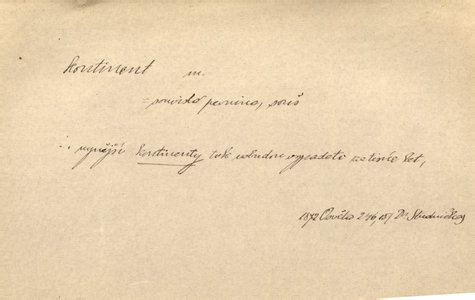 kontinent m.
= souvislá pevnina, souš
: nynější kontinenty také nebudou vypadati za tisíc let,
1872 Osvěta 246, Dr Studnička